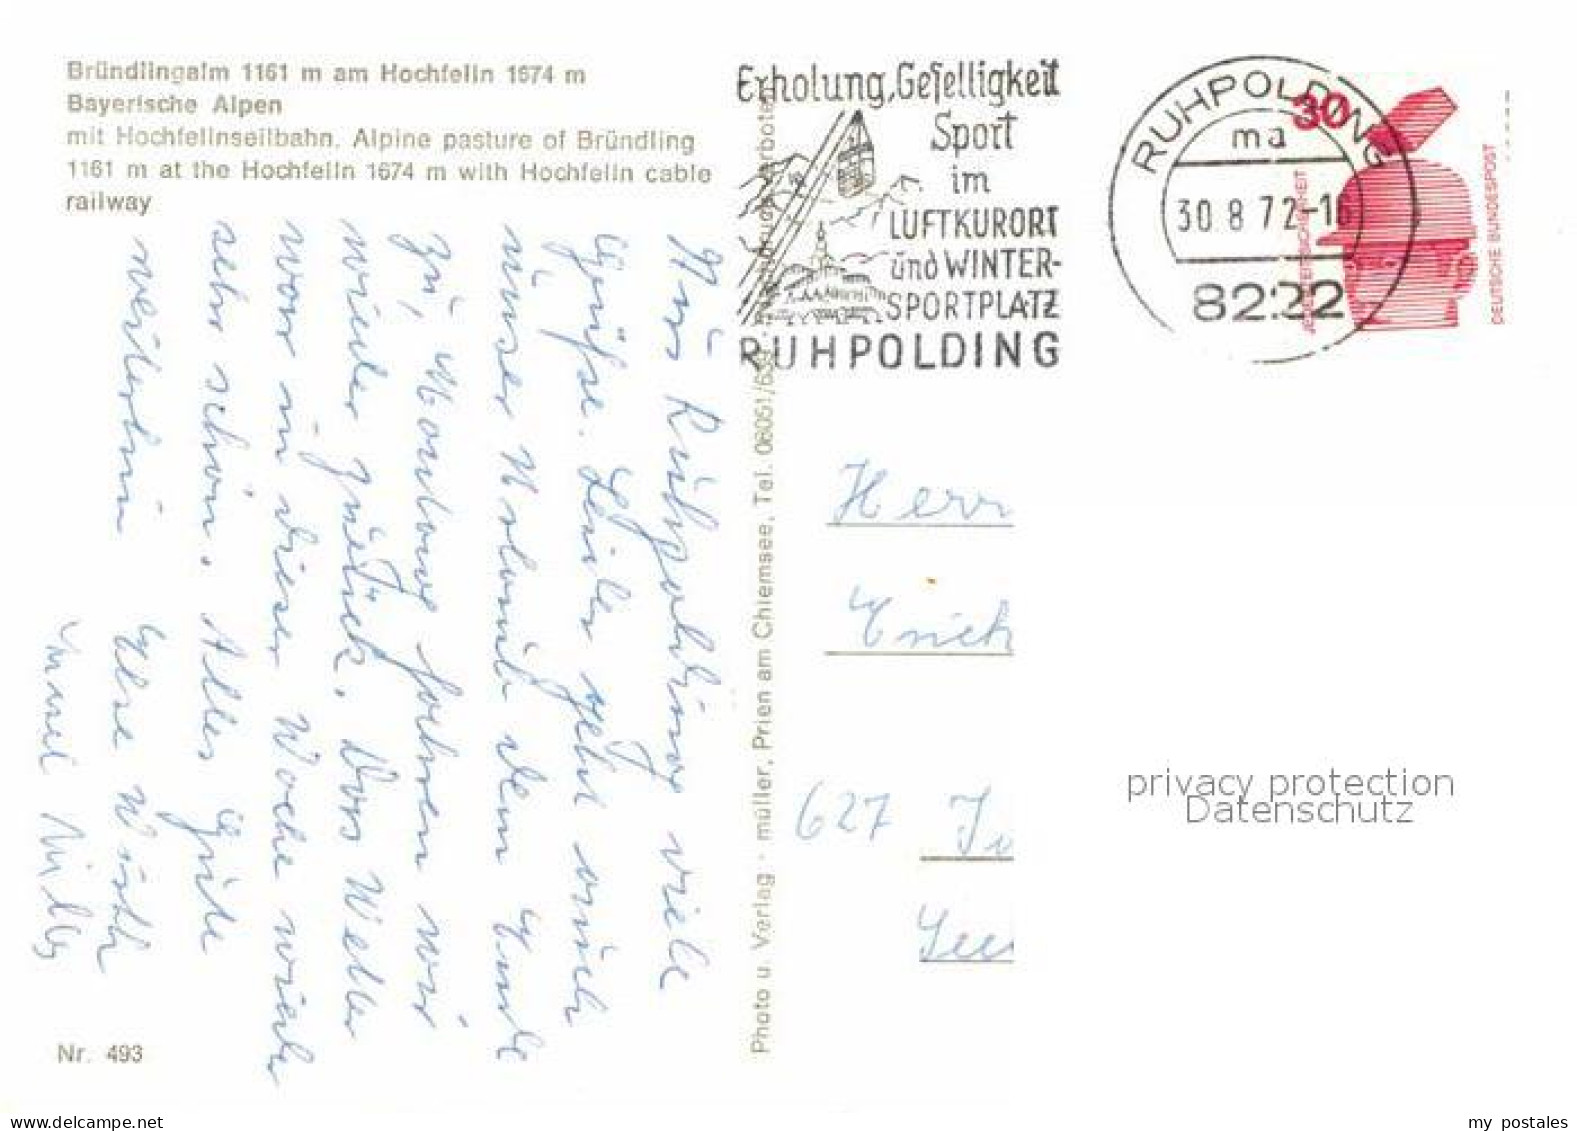 Bründlingalm 1161 m am Hochfelln 1674 m
Bayerische Alpen
mit Hochfellnseilbahn. Alpine pasture of Bründling
1161 m at the Hochfelln 1674 m with Hochfelln cable
railway
Aus Ruhpolding viele
Grüße. Leider geht auch
unser Urlaub dem Ende
zu, Montag fahren wir
wieder zurück. Das Wetter
war in dieser Woche wieder
sehr schön. Alles Gute
weiterhin Else
Nr. 493
Photo u. Verlag · müller, Prien am Chiemsee, Tel. 08051/639
Erholung, Geselligkeit
Sport
im
LUFTKURORT
und WINTER-
SPORTPLATZ
RUHPOLDING
RUHPOLDING
ma
30.8.72-16
8222
30
JEDERZEIT SICHERHEIT
DEUTSCHE BUNDESPOST
Herr
Erich
627
privacy protection
Datenschutz
my postales